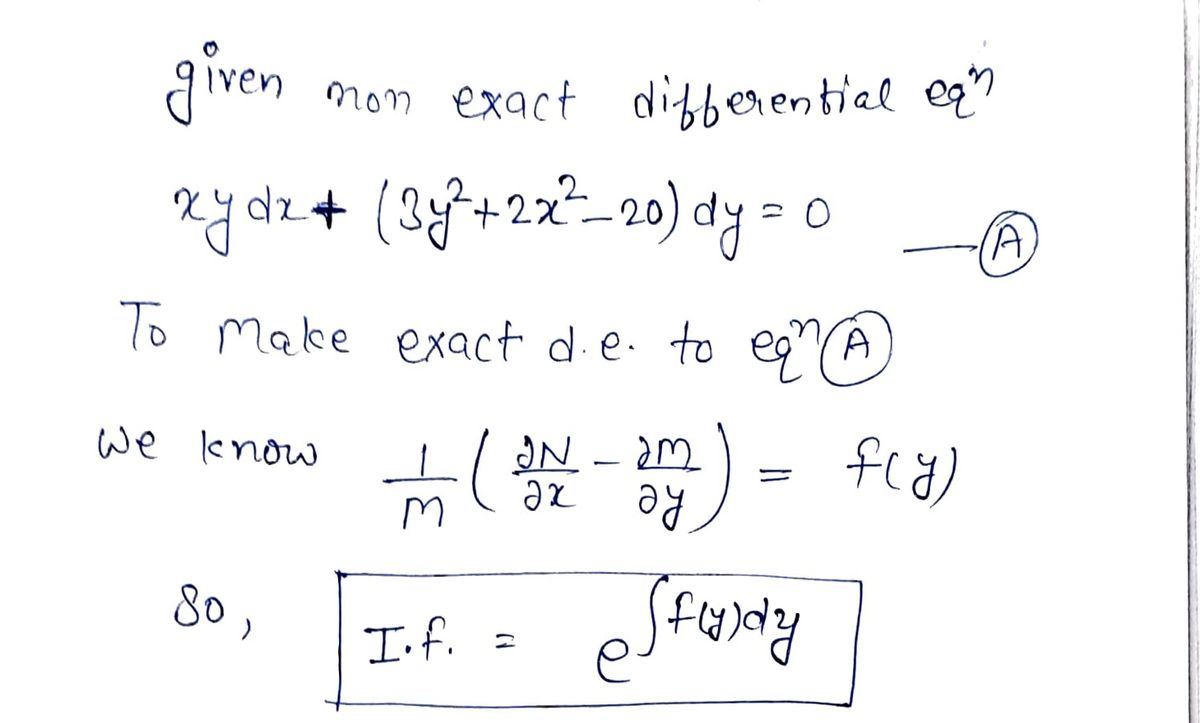 given non exact differential eqⁿ
xy dx + (3y² + 2x² - 20) dy = 0 —Ⓐ
To Make exact d.e. to eqⁿ Ⓐ
We know 1/m (∂N/∂x - ∂m/∂y) = f(y)
So, I.f. = e^∫f(y)dy